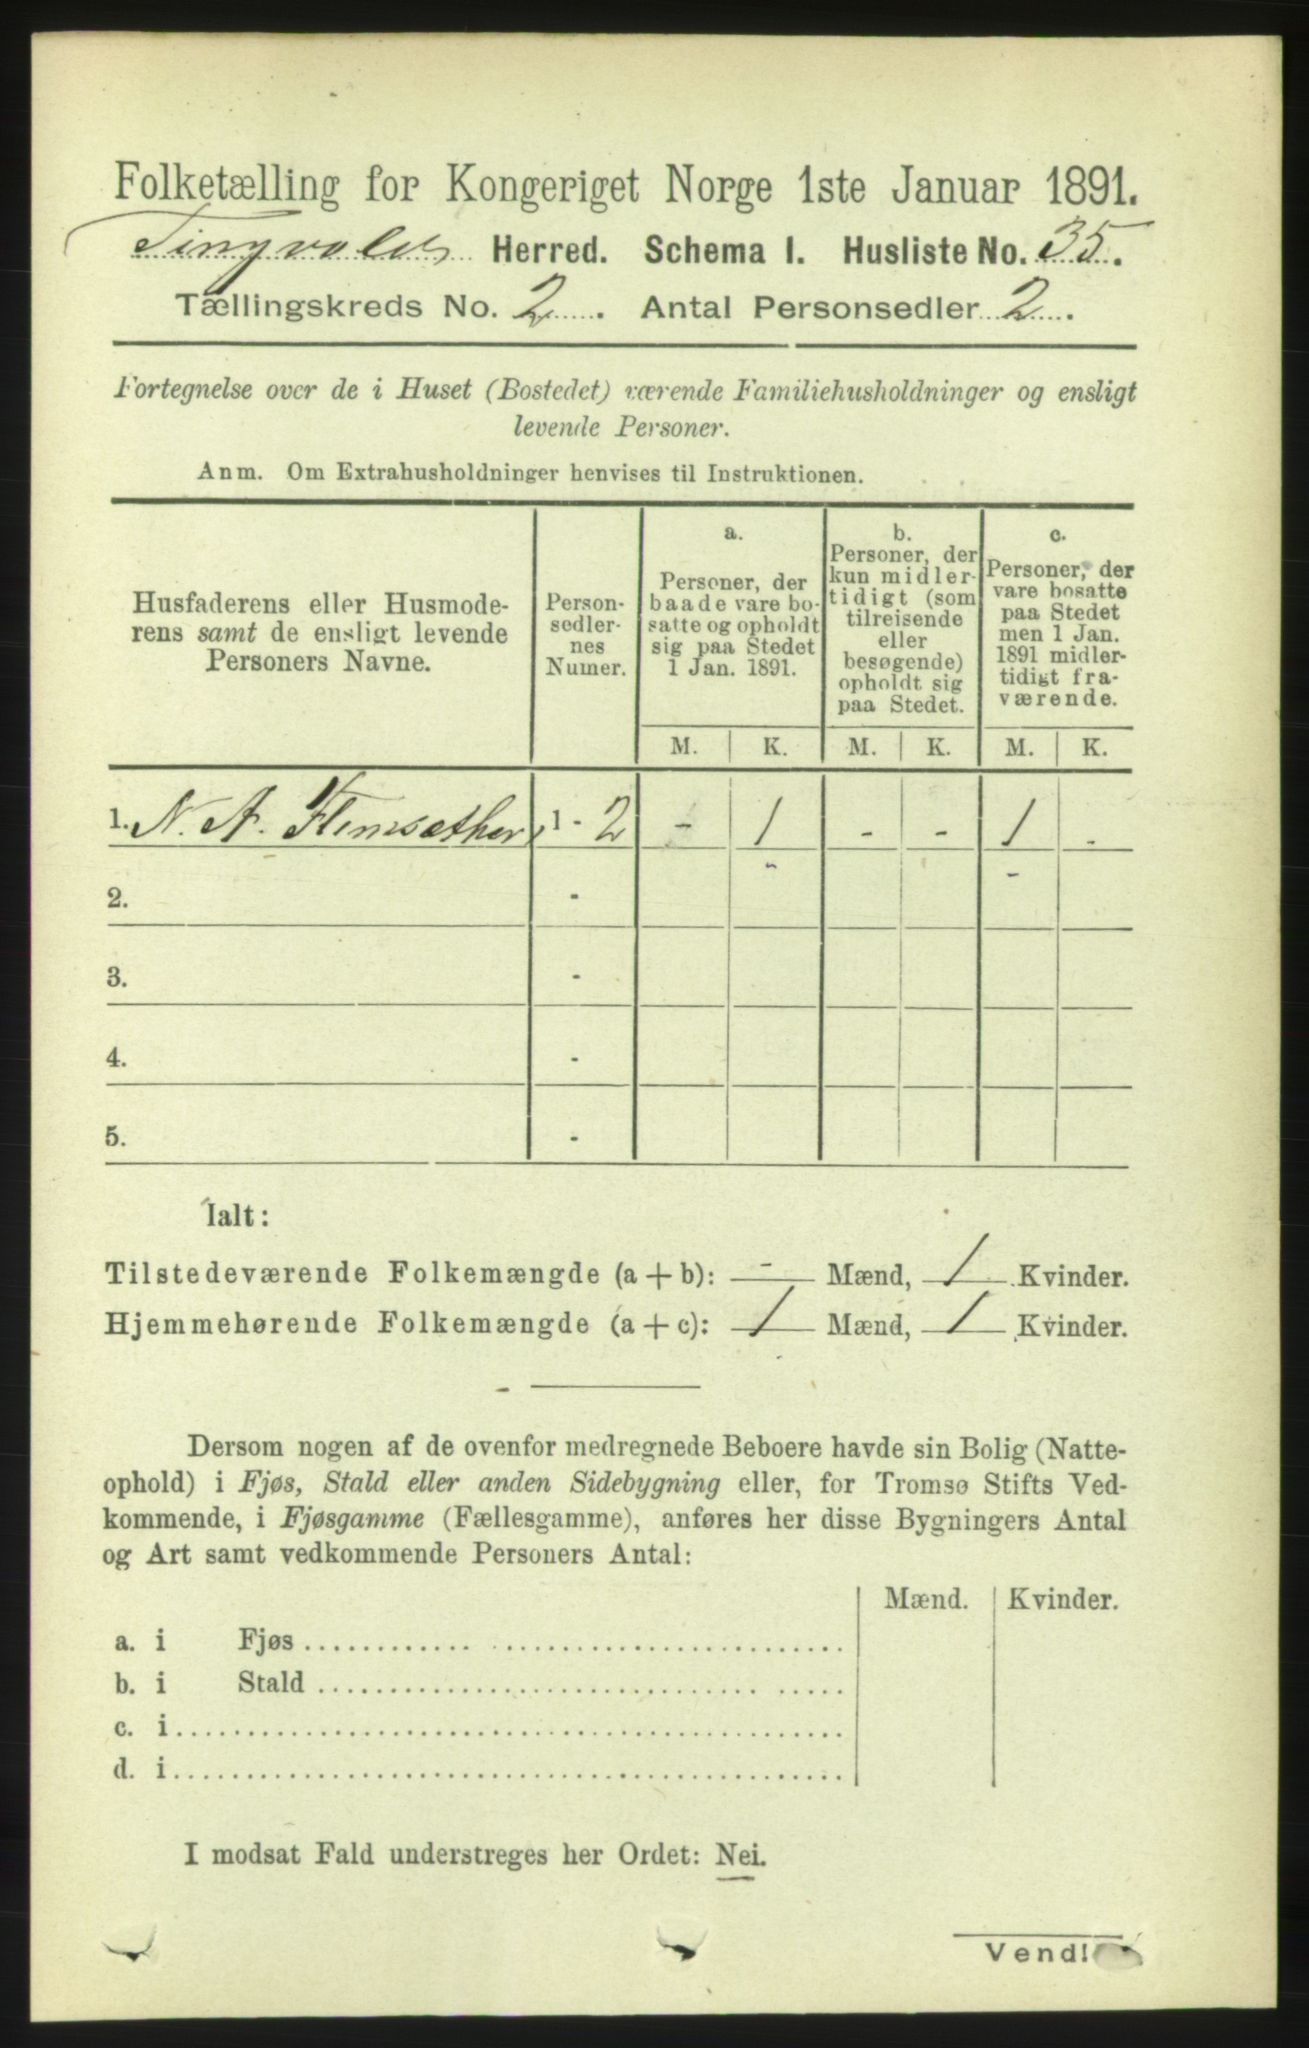 Folketælling for Kongeriget Norge 1ste Januar 1891.
Tingvolds Herred. Schema I. Husliste No. 35.
Tællingskreds No. 2. Antal Personsedler 2.
Fortegnelse over de i Huset (Bostedet) værende Familiehusholdninger og ensligt
levende Personer.
Anm. Om Extrahusholdninger henvises til Instruktionen.
Husfaderens eller Husmode-
rens samt de ensligt levende
Personers Navne.
Person-
sedler-
nes
Numer.
a.
Personer, der
baade vare bo-
satte og opholdt
sig paa Stedet
1 Jan. 1891.
b.
Personer, der
kun midler-
tidigt (som
tilreisende
eller
besøgende)
opholdt sig
paa Stedet.
c.
Personer, der
vare bosatte
paa Stedet
men 1 Jan.
1891 midler-
tidigt fra-
værende.
M. K. M. K. M. K.
1. N. A. Flemsæther 1 - 2 - 1 - - 1 -
2. -
3. -
4. -
5. -
Ialt:
Tilstedeværende Folkemængde (a + b): - Mænd, 1 Kvinder.
Hjemmehørende Folkemængde (a + c): 1 Mænd, 1 Kvinder.
Dersom nogen af de ovenfor medregnede Beboere havde sin Bolig (Natte-
ophold) i Fjøs, Stald eller anden Sidebygning eller, for Tromsø Stifts Ved-
kommende, i Fjøsgamme (Fællesgamme), anføres her disse Bygningers Antal
og Art samt vedkommende Personers Antal:
Mænd. Kvinder.
a. i Fjøs
b. i Stald
c. i
d. i
I modsat Fald understreges her Ordet: Nei.
Vend!